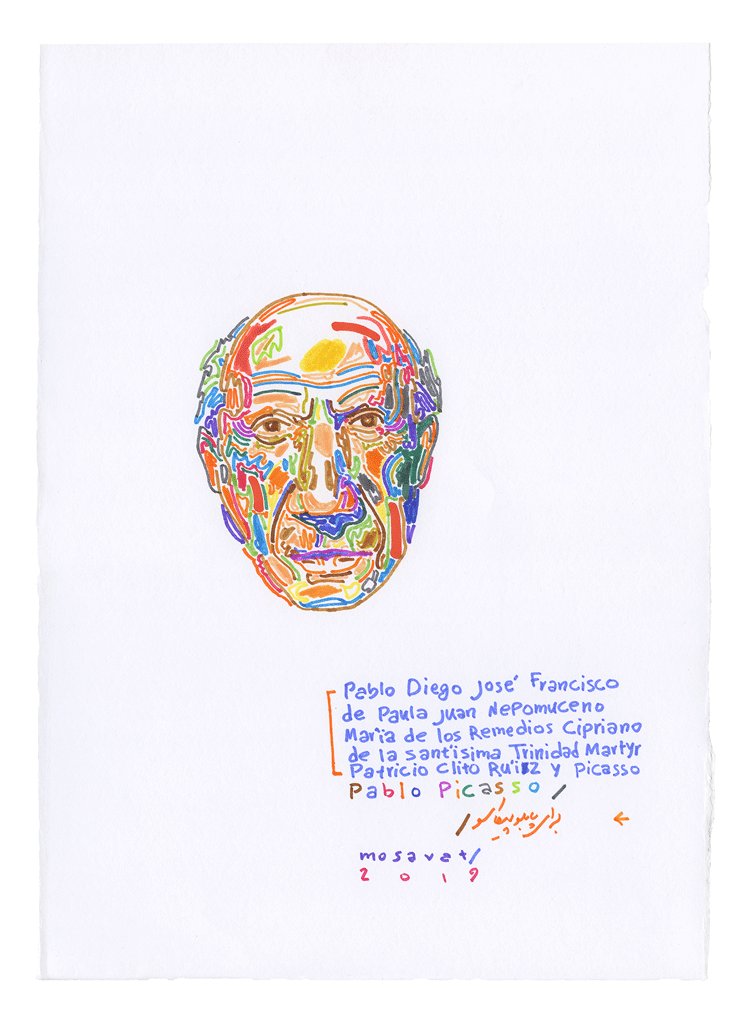 Pablo Diego José Francisco
de Paula Juan Nepomuceno
María de los Remedios Cipriano
de la santísima Trinidad Martyr
Patricio Clito Ruíz y Picasso
Pablo Picasso /
← برای پابلو پیکاسو /
mosavat/
2019